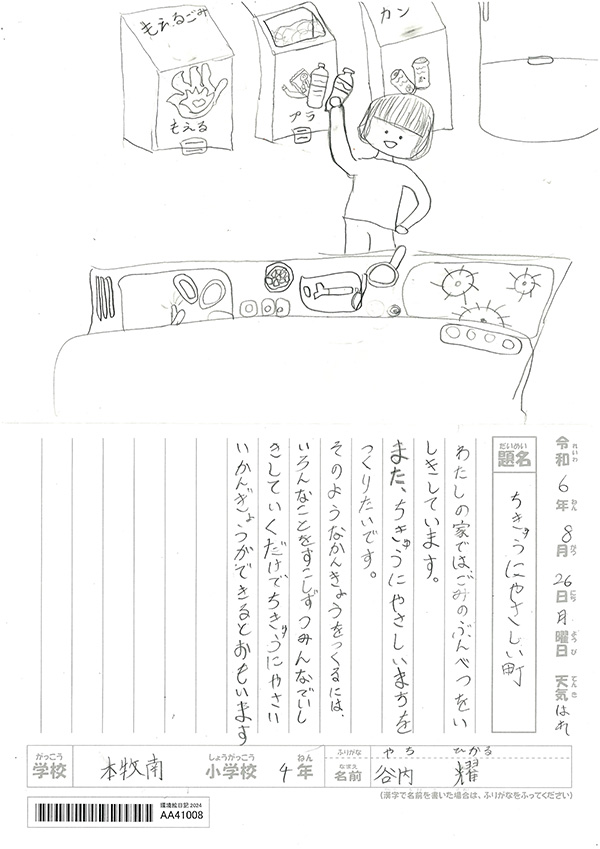 もえるごみ
もえる
プラ
カン
令和6年8月26日月曜日 天気はれ
れいわ ねん がつ にち ようび てんき
だいめい
題名
ちきゅうにやさしい町
わたしの家では、ごみのぶんべつをい
しきしています。
また、ちきゅうにやさしいまちを
つくりたいです。
そのようなかんきょうをつくるには、
いろんなことをすこしずつみんなでいし
きしていくだけでちきゅうにやさい
いかんぎょうができるとおもいます
がっこう
学校
本牧南
しょうがっこう
小学校
4
ねん
年
ふりがな
やち ひかる
なまえ
名前
谷内 耀
(漢字で名前を書いた場合は、ふりがなをふってください)
環境絵日記 2024
AA41008